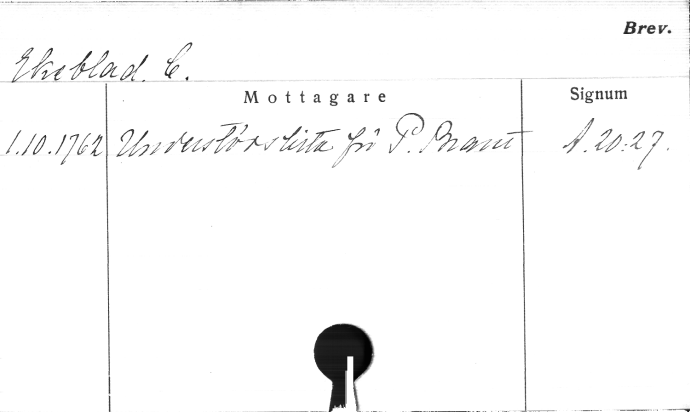 Brev.
Ekeblad. C.
Mottagare
Signum
1.10.1762 Understödslista för P. Brant A.20:27.